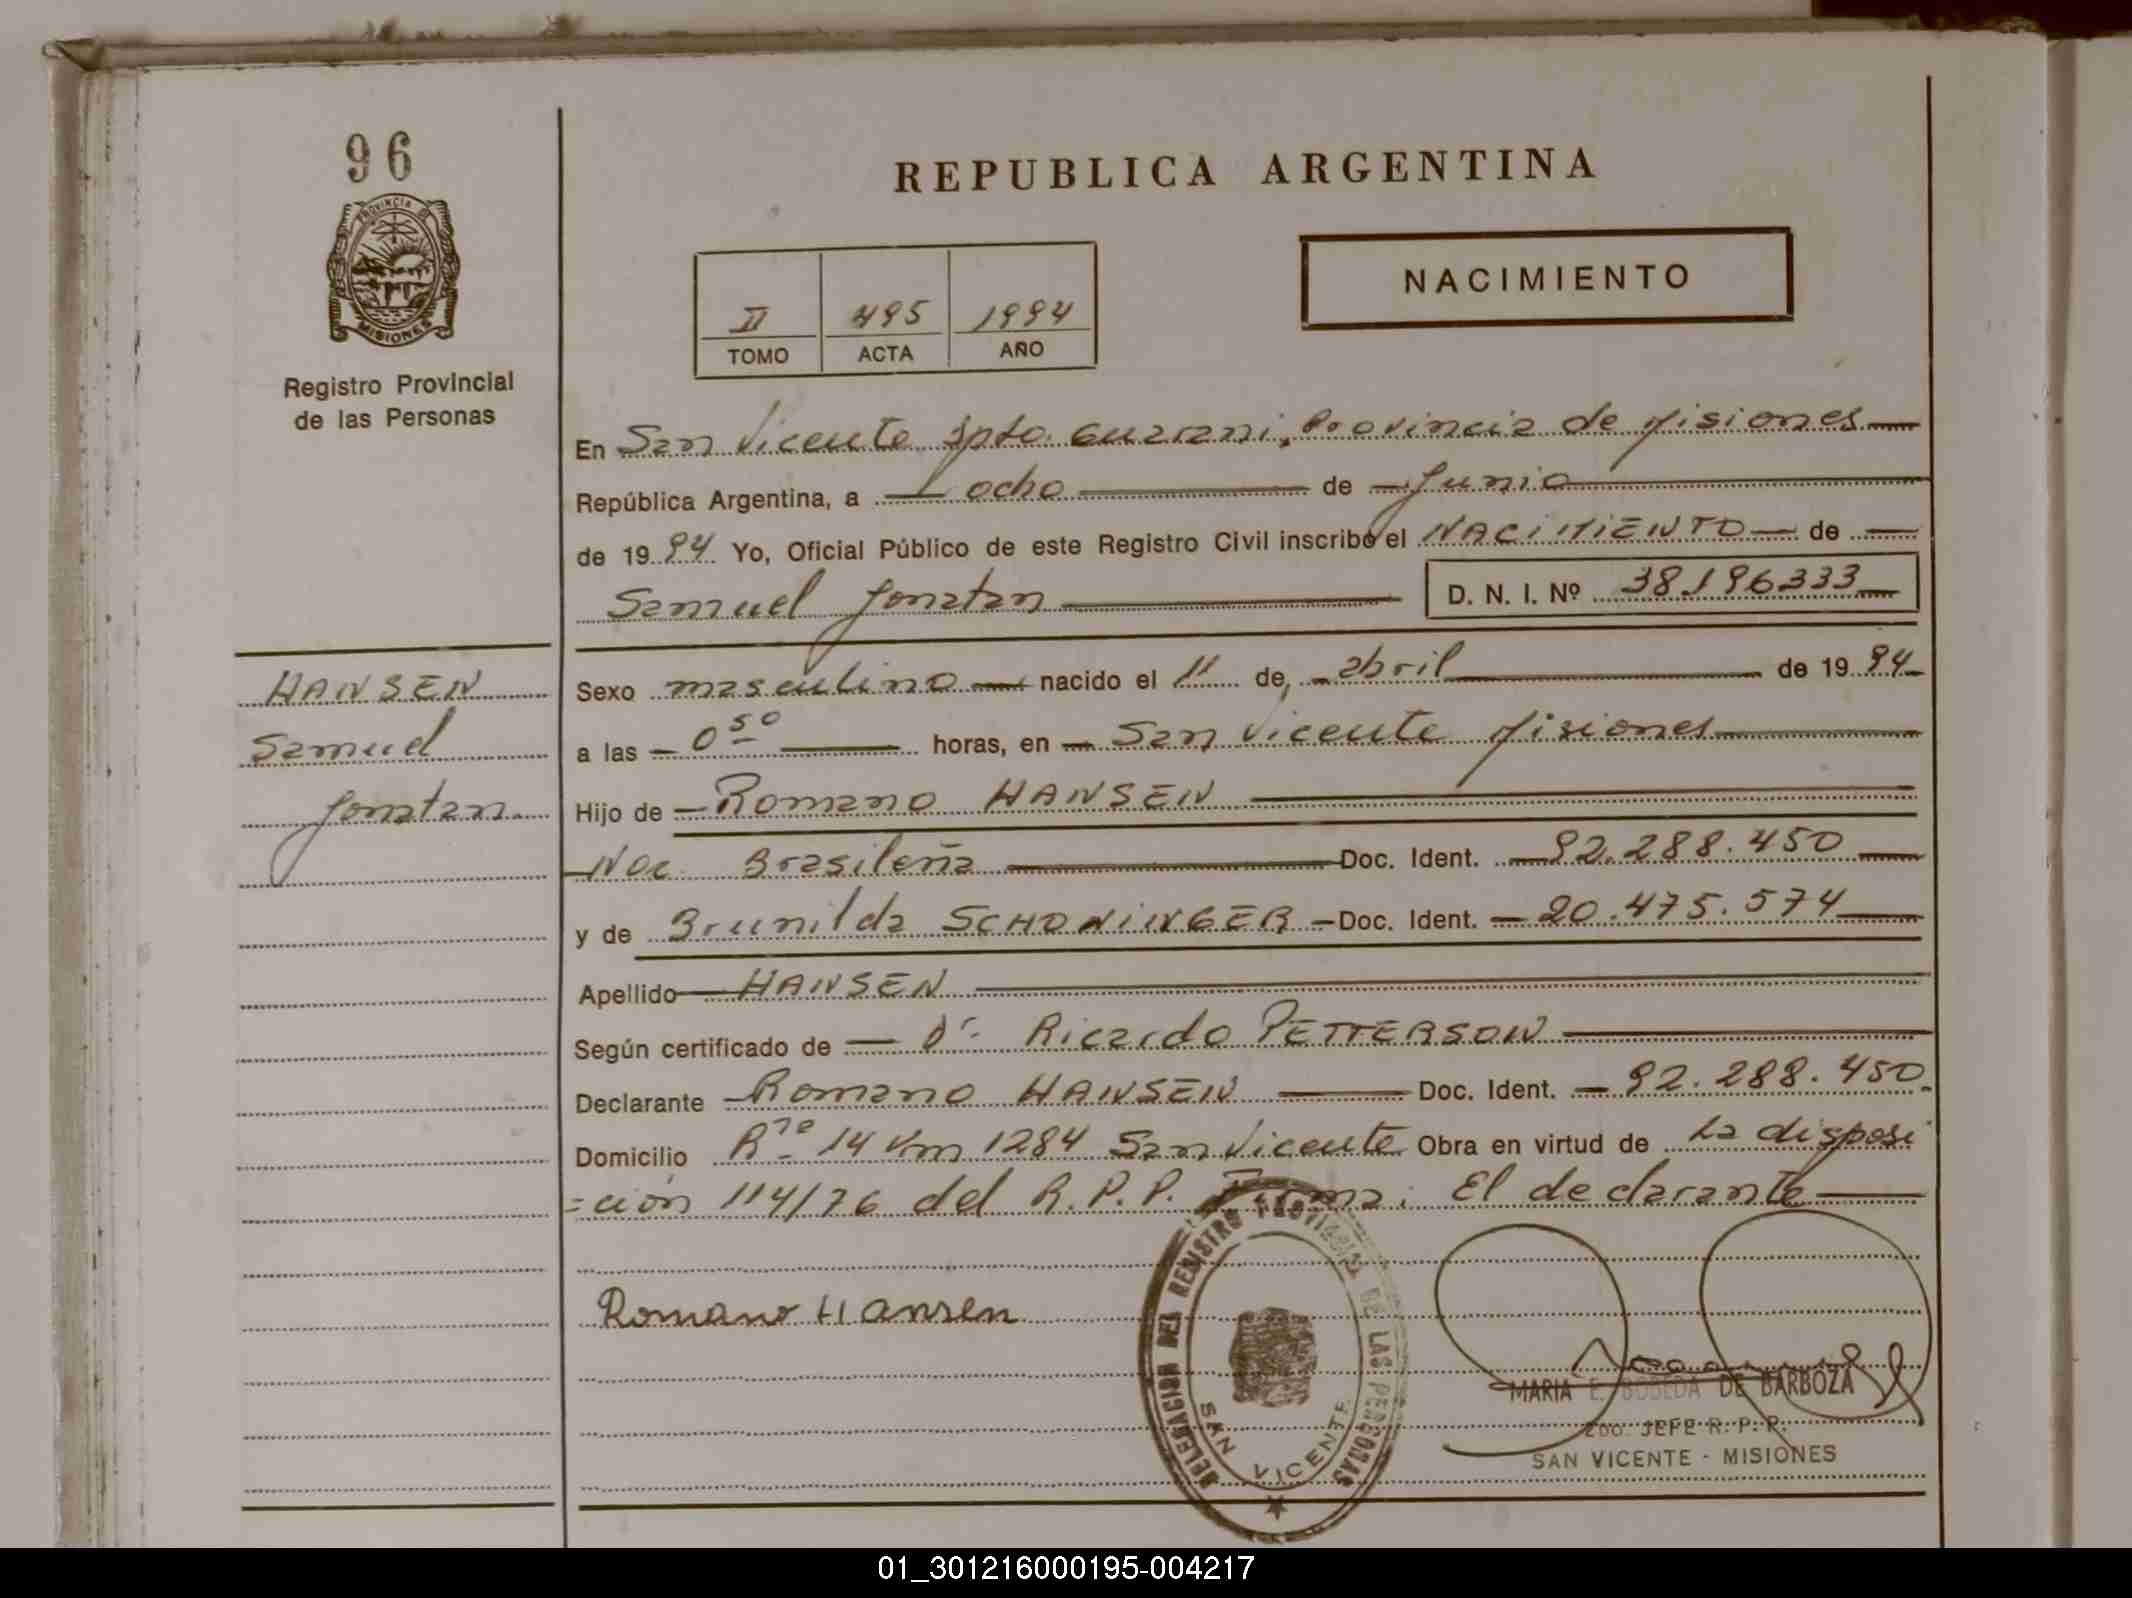 96
PROVINCIA DE
MISIONES
Registro Provincial
de las Personas
HANSEN
Samuel
Jonatan
REPUBLICA ARGENTINA
NACIMIENTO
II 495 1994
TOMO ACTA AÑO
En San Vicente Dpto. Guarani, Provincia de Misiones
República Argentina, a ocho de Junio
de 1994 Yo, Oficial Público de este Registro Civil inscribo el NACIMIENTO de
Samuel Jonatan D. N. I. Nº 38.196333
Sexo masculino nacido el 11 de abril de 1994
a las 0 50 horas, en San Vicente Misiones
Hijo de Romano HANSEN
Nac Brasileña Doc. Ident. 92.288.450
y de Brunilda SCHONINGER Doc. Ident. 20.475.574
Apellido HANSEN
Según certificado de Dr. Ricardo PETTERSON
Declarante Romano HANSEN Doc. Ident. 92.288.450
Domicilio Rta 14 Km 1284 San Vicente Obra en virtud de La disposi
=ción 114/76 del R.P.P. Firma: El declarante
Romano Hansen
DELEGACION DEL REGISTRO PROVINCIAL DE LAS PERSONAS
SAN VICENTE
MARIA E. BOBEDA DE BARBOZA
2DO. JEFE R. P. P.
SAN VICENTE - MISIONES
01_301216000195-004217